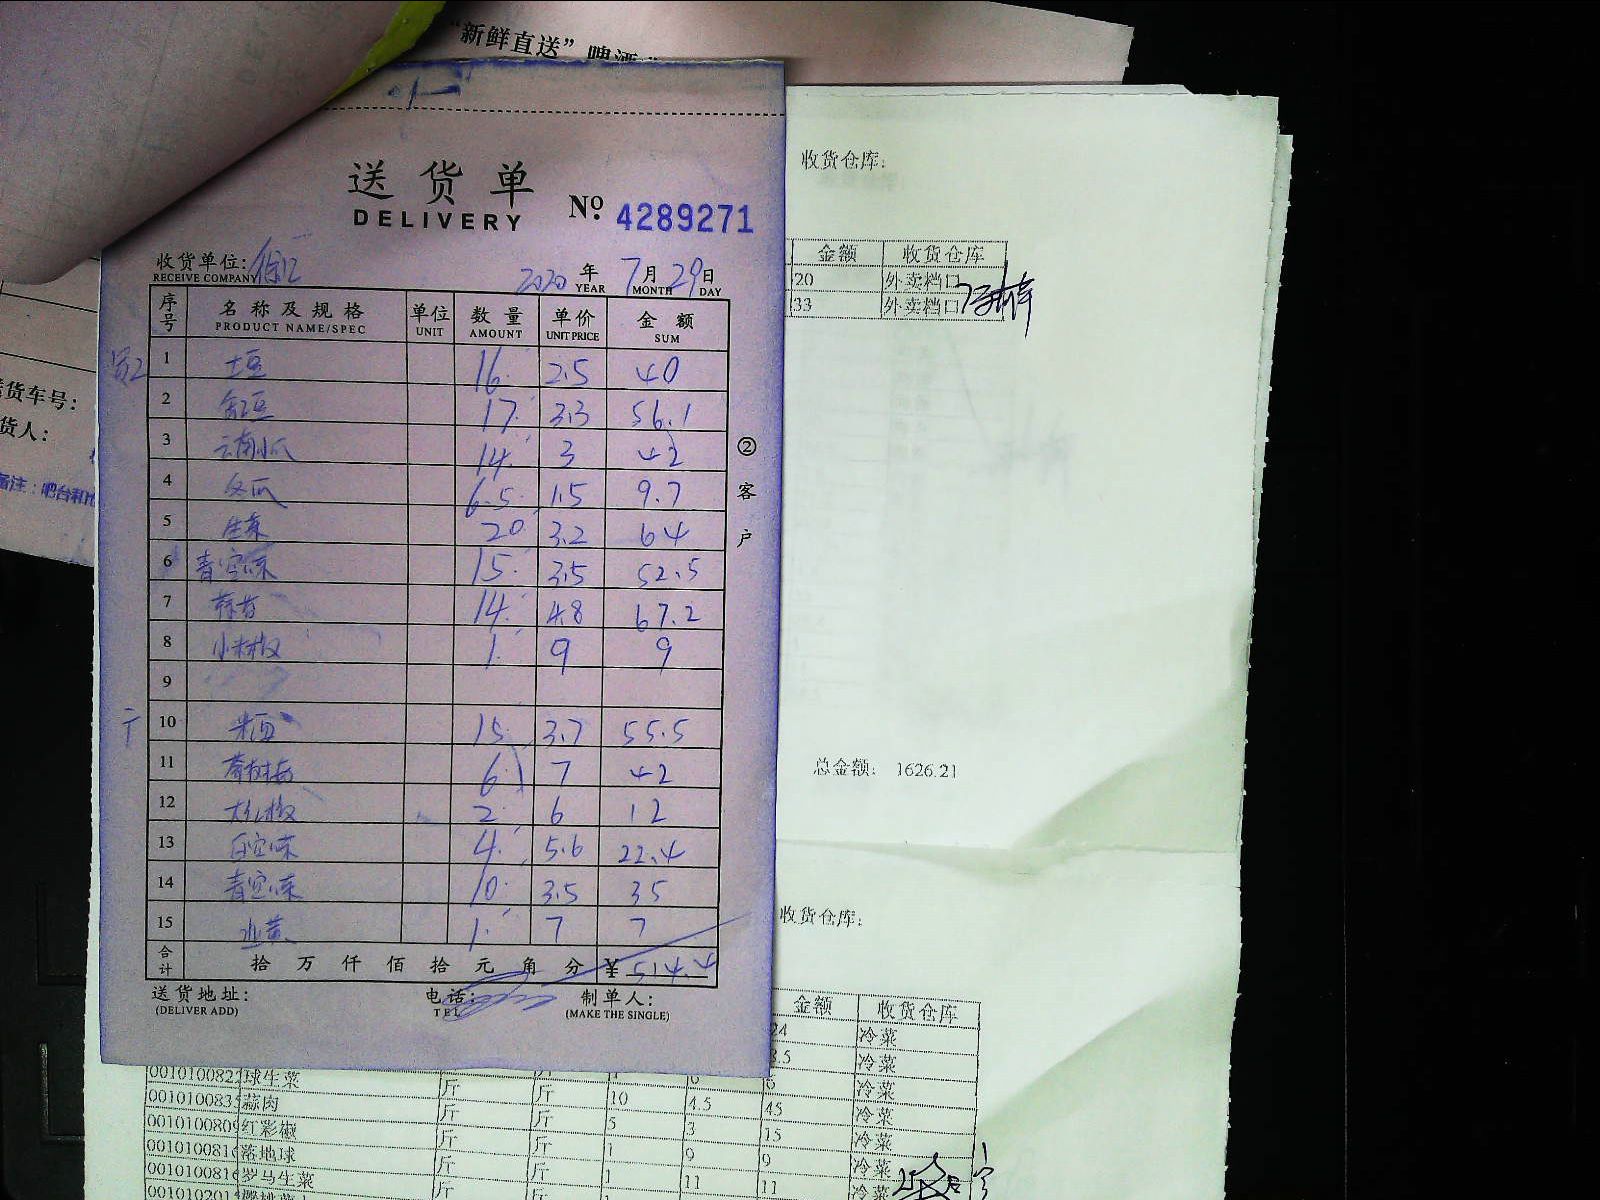 “新鲜直送”啤酒
送货单
DELIVERY
No 4289271
收货单位: 徐汇
RECEIVE COMPANY
2020 年 7 月 29 日
YEAR MONTH DAY
序号 名称及规格 单位 数量 单价 金额
PRODUCT NAME/SPEC UNIT AMOUNT UNIT PRICE SUM
1 土豆 16 2.5 40
2 缸豆 17 3.3 56.1
3 云南小瓜 14 3 42
4 冬瓜 6.5 1.5 9.7
5 生菜 20 3.2 64
6 青空心菜 15 3.5 52.5
7 14 4.8 67.2
8 小米椒 1 9 9
9
10 15 3.7 55.5
11 6 7 42
12 大红椒 2 6 12
13 白空心菜 4 5.6 22.4
14 青空心菜 10 3.5 35
15 韭黄 1 7 7
合计 拾 万 仟 佰 拾 元 角 分 ¥ 514.4
送货地址: 电话: 制单人:
(DELIVER ADD) TEL (MAKE THE SINGLE)
②客户
货车号:
货人:
备注：吧台和
收货仓库:
金额 收货仓库
20 外卖档口
33 外卖档口
总金额: 1626.21
收货仓库:
金额 收货仓库
24 冷菜
3.5 冷菜
球生菜 斤 斤 冷菜
蒜肉 斤 斤 10 4.5 45 冷菜
红彩椒 斤 斤 5 3 15 冷菜
落地球 斤 斤 1 9 9 冷菜
罗马生菜 斤 斤 1 11 11 冷菜